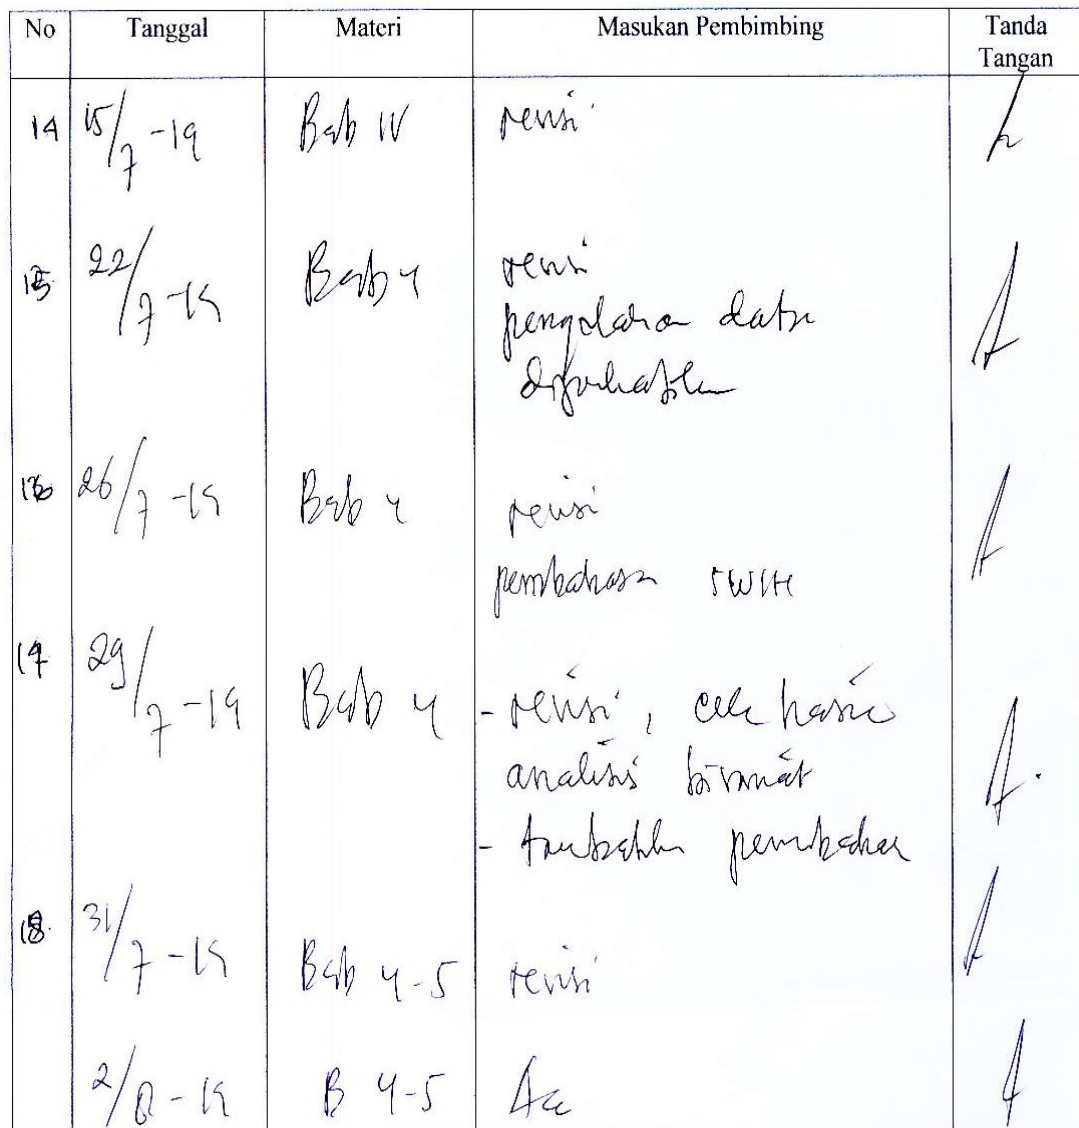 No Tanggal Materi Masukan Pembimbing Tanda Tangan
14 15/7-19 Bab IV revisi
15 22/7-19 Bab 4 revisi
pengolahan data
diperbaiki
16 26/7-19 Bab 4 revisi
pembahasan 5W1H
17 29/7-19 Bab 4 - revisi, cek hasil
analisis bivariat
- tambahkan pembahasan
18. 31/7-19 Bab 4-5 revisi
2/8-19 B 4-5 Acc